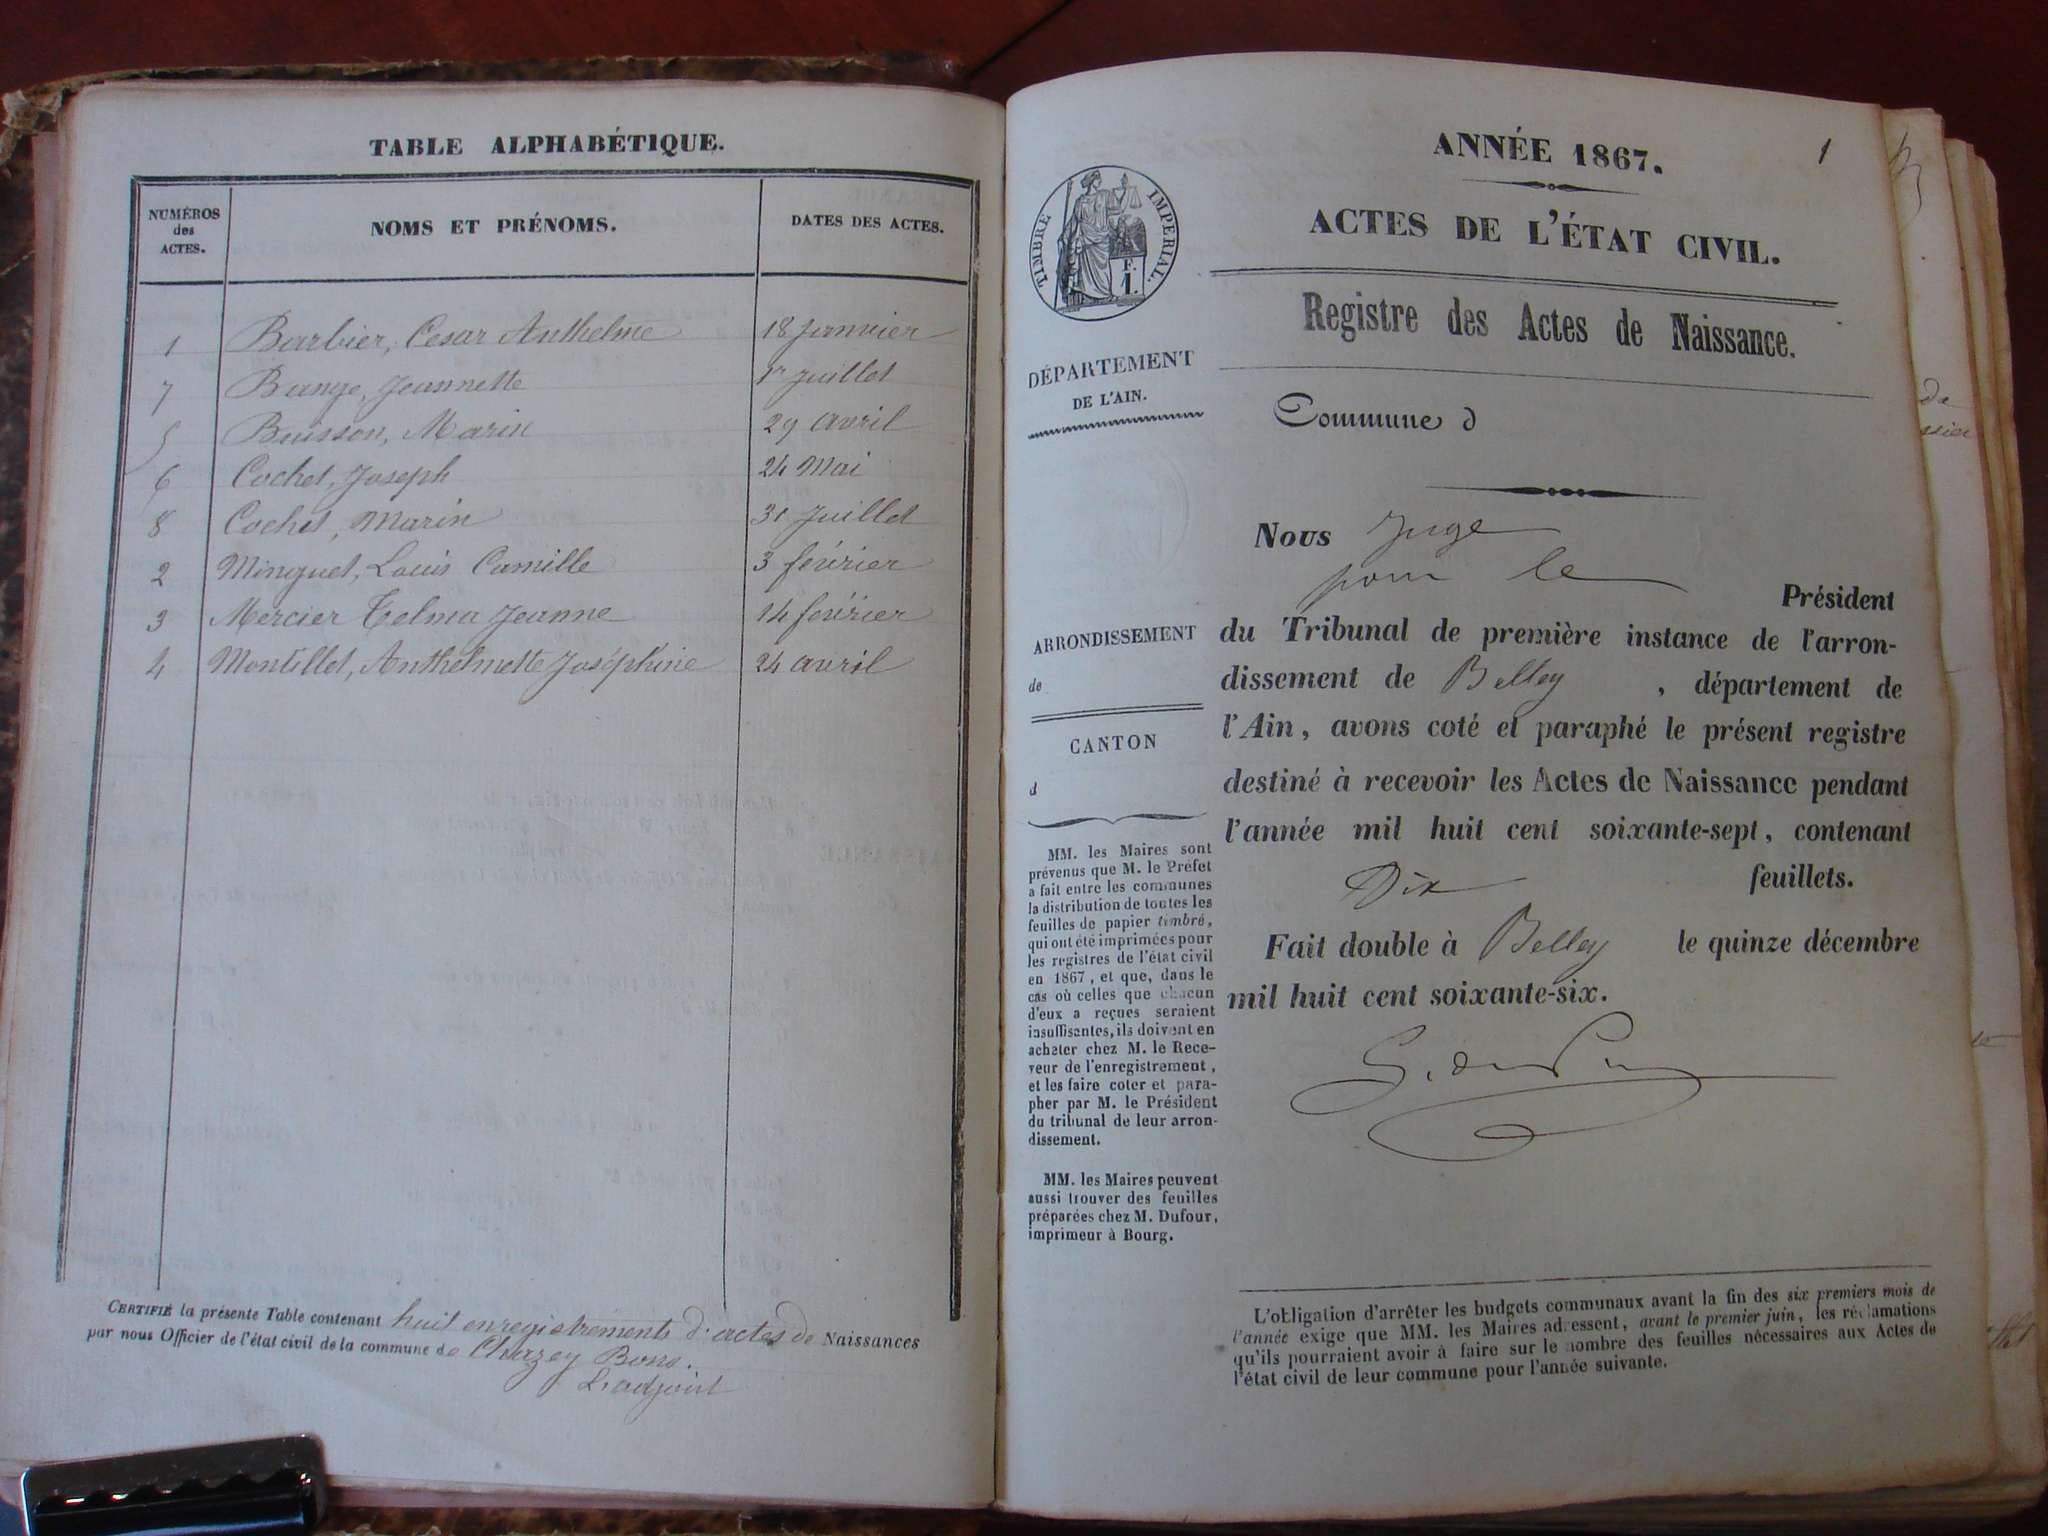 TABLE ALPHABÉTIQUE.
NUMÉROS des ACTES. NOMS ET PRÉNOMS. DATES DES ACTES.
1 Barbier, Cesar Anthelme 18 Janvier
7 Bange, Jeannette 1r Juillet
5 Buisson, Marin 29 avril
6 Cochet, Joseph 24 Mai
8 Cochet, Marin 31 Juillet
2 Minguet, Louis Camille 3 février
3 Mercier Telma Jeanne 14 février
4 Montillet, Anthelmette Joséphine 24 avril
CERTIFIÉ la présente Table contenant huit enregistrements d'actes de Naissances
par nous Officier de l'état civil de la commune de Chazey Bons.
L'adjoint
1
ANNÉE 1867.
ACTES DE L'ÉTAT CIVIL.
Registre des Actes de Naissance.
TIMBRE IMPERIAL.
F.
1.
DÉPARTEMENT
DE L'AIN.
Commune d
Nous Juge
pour le
Président
du Tribunal de première instance de l'arron-
dissement de Belley, département de
l'Ain, avons coté et paraphé le présent registre
destiné à recevoir les Actes de Naissance pendant
l'année mil huit cent soixante-sept, contenant
Dix feuillets.
Fait double à Belley le quinze décembre
mil huit cent soixante-six.
ARRONDISSEMENT
de
CANTON
d
MM. les Maires sont
prévenus que M. le Préfet
a fait entre les communes
la distribution de toutes les
feuilles de papier timbré,
qui ont été imprimées pour
les registres de l'état civil
en 1867, et que, dans le
cas où celles que chacun
d'eux a reçues seraient
insuffisantes, ils doivent en
acheter chez M. le Rece-
veur de l'enregistrement,
et les faire coter et para-
pher par M. le Président
du tribunal de leur arron-
dissement.
MM. les Maires peuvent
aussi trouver des feuilles
préparées chez M. Dufour,
imprimeur à Bourg.
L'obligation d'arrêter les budgets communaux avant la fin des six premiers mois de
l'année exige que MM. les Maires adressent, avant le premier juin, les réclamations
qu'ils pourraient avoir à faire sur le nombre des feuilles nécessaires aux Actes de
l'état civil de leur commune pour l'année suivante.